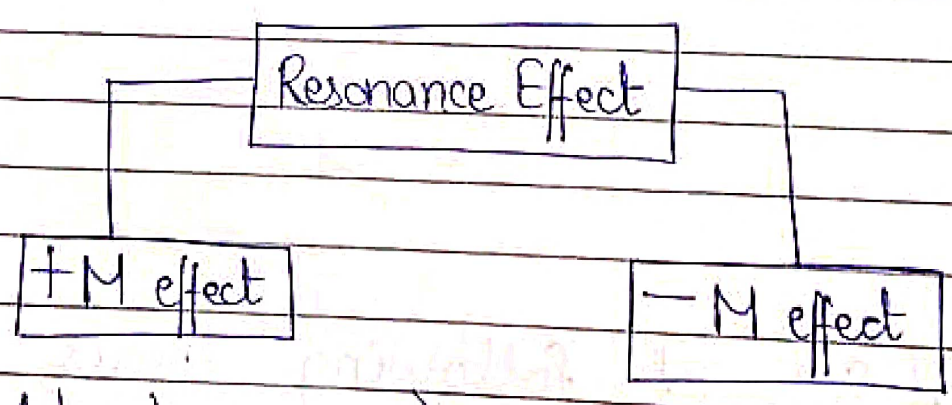 Resonance Effect
+M effect
- M effect